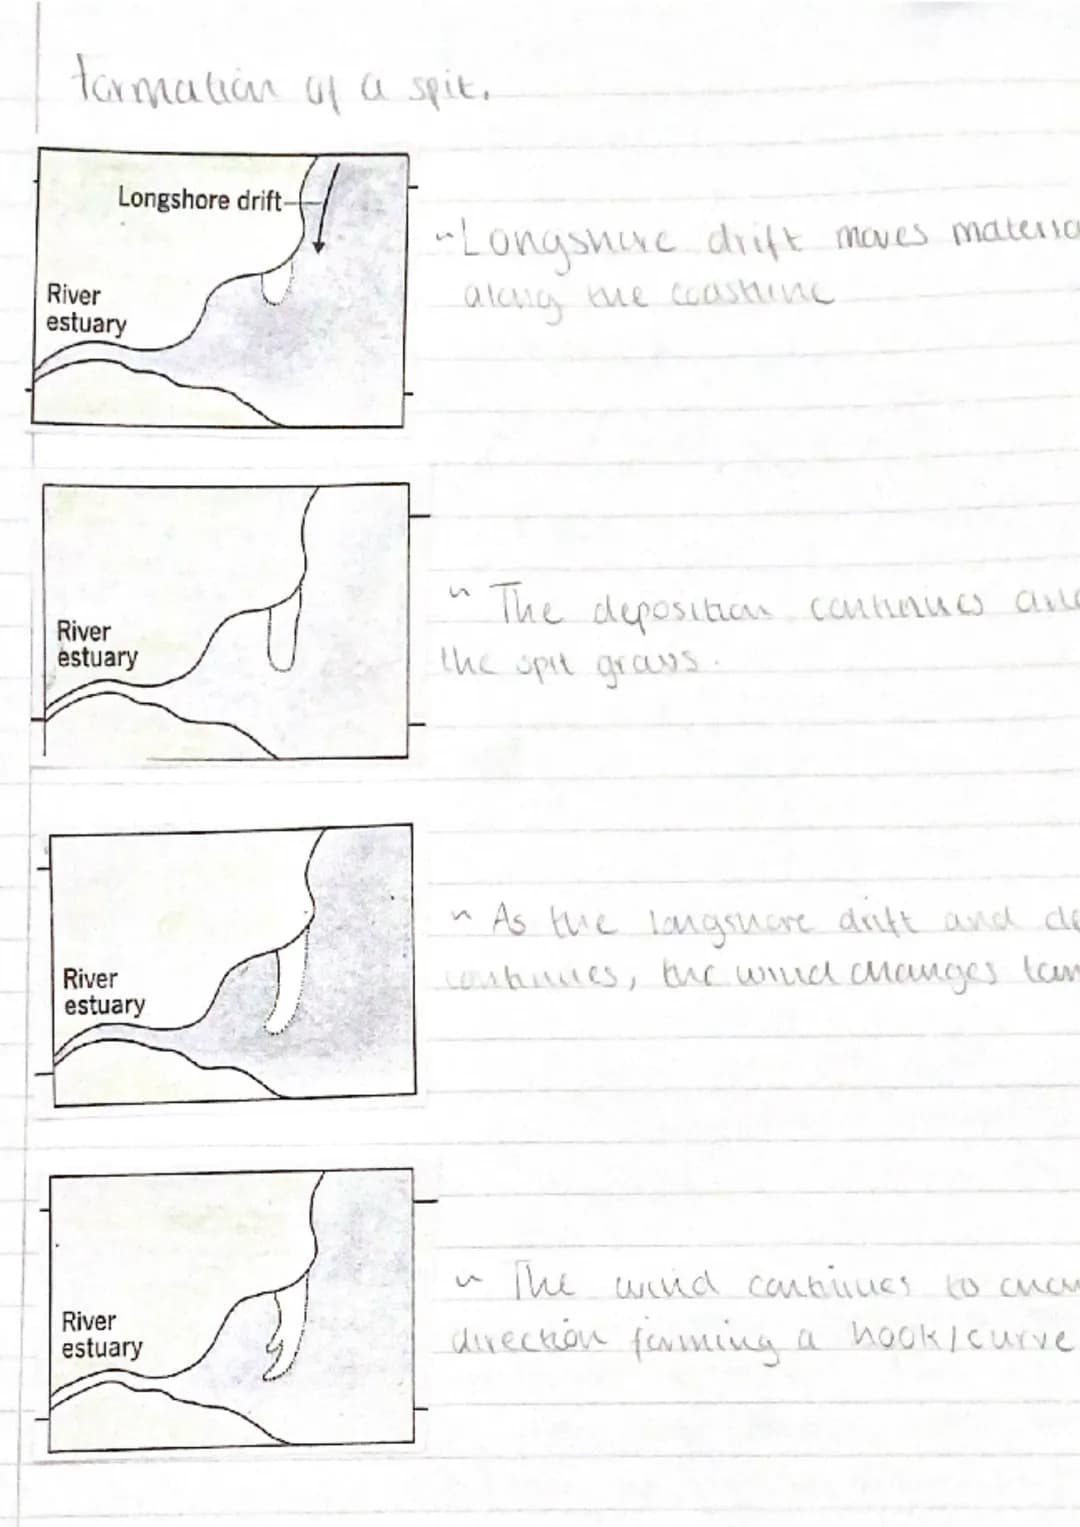 formation of a spit.
Longshore drift
River
estuary
~Longshore drift moves materia
along the coastline
River
estuary
~ The deposition continues
the spit grows.
River
estuary
~ As the longshore drift and de
continues, the wind changes
River
estuary
~ The wind continues to
direction forming a hook/curve